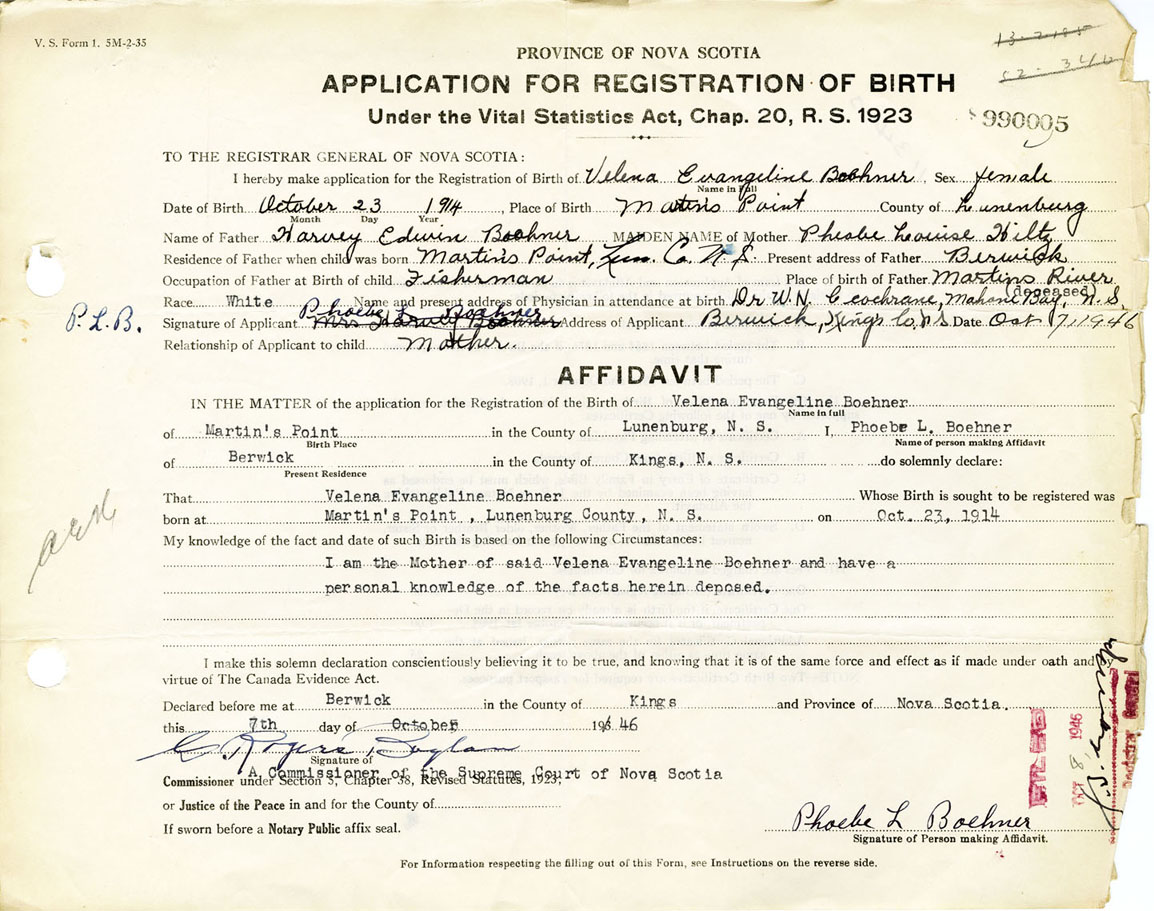 V. S. Form 1. 5M-2-35
PROVINCE OF NOVA SCOTIA
APPLICATION FOR REGISTRATION OF BIRTH
Under the Vital Statistics Act, Chap. 20, R. S. 1923
990005
TO THE REGISTRAR GENERAL OF NOVA SCOTIA:
I hereby make application for the Registration of Birth of Velena Evangeline Boehner, Sex female
Name in full
Date of Birth October 23 1914, Place of Birth Martins Point County of Lunenburg
Month Day Year
Name of Father Harvey Edwin Boehner MAIDEN NAME of Mother Pheobe Louise Hiltz
Residence of Father when child was born Martins Point, Lun. Co. N. S. Present address of Father Berwick
Occupation of Father at Birth of child Fisherman Place of birth of Father Martins River
(Deceased)
Race White Name and present address of Physician in attendance at birth Dr W. N. Cochrane, Mahone Bay, N. S.
Phoebe L. Boehner
P. L. B. Signature of Applicant Mrs Harvey Boehner Address of Applicant Berwick, Kings Co, N S Date Oct 7, 1946
Relationship of Applicant to child Mother.
AFFIDAVIT
IN THE MATTER of the application for the Registration of the Birth of Velena Evangeline Boehner
Name in full
of Martin's Point in the County of Lunenburg, N. S. I, Phoebe L. Boehner
Birth Place Name of person making Affidavit
of Berwick in the County of Kings, N. S. do solemnly declare:
Present Residence
That Velena Evangeline Boehner Whose Birth is sought to be registered was
born at Martin's Point, Lunenburg County, N. S. on Oct. 23, 1914
My knowledge of the fact and date of such Birth is based on the following Circumstances:
I am the Mother of said Velena Evangeline Boehner and have a
personal knowledge of the facts herein deposed.
I make this solemn declaration conscientiously believing it to be true, and knowing that it is of the same force and effect as if made under oath and by
virtue of The Canada Evidence Act.
Declared before me at Berwick in the County of Kings and Province of Nova Scotia.
this 7th day of October 1946
Signature of
A Commissioner of the Supreme Court of Nova Scotia
Commissioner under Section 3, Chapter 38, Revised Statutes, 1923,
or Justice of the Peace in and for the County of
If sworn before a Notary Public affix seal.
Phoebe L Boehner
Signature of Person making Affidavit.
OCT 8, 1946
For Information respecting the filling out of this Form, see Instructions on the reverse side.